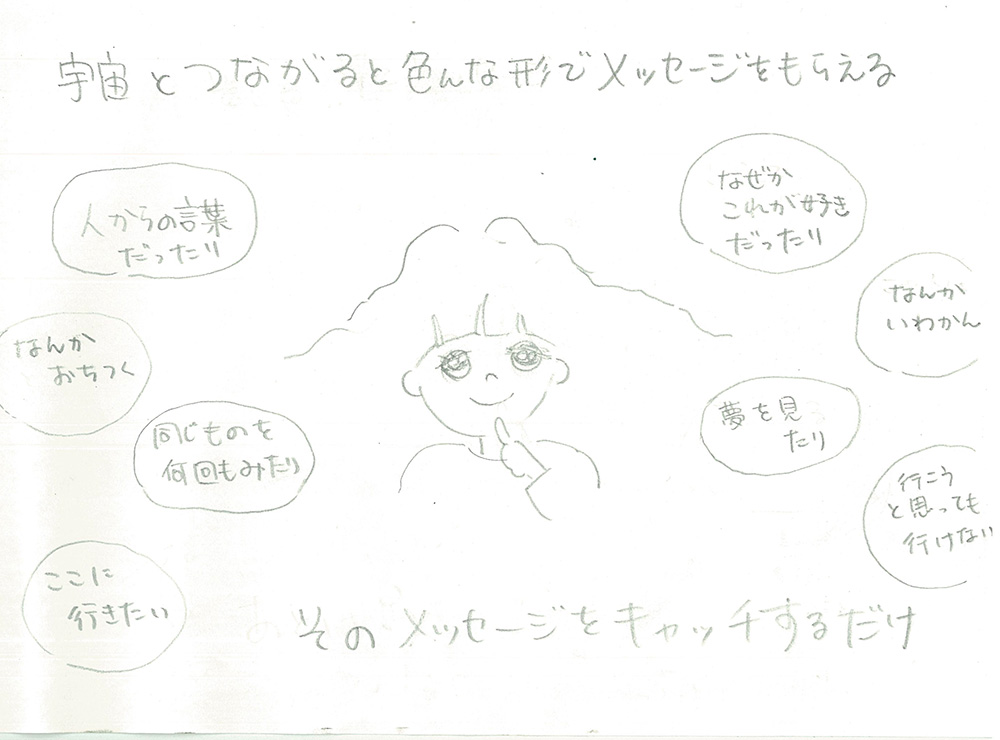 宇宙とつながると色んな形でメッセージをもらえる
人からの言葉
だったり
なぜか
これが好き
だったり
なんか
おちつく
なんか
いわかん
同じものを
何回もみたり
夢を見
たり
ここに
行きたい
行こう
と思っても
行けない
そのメッセージをキャッチするだけ